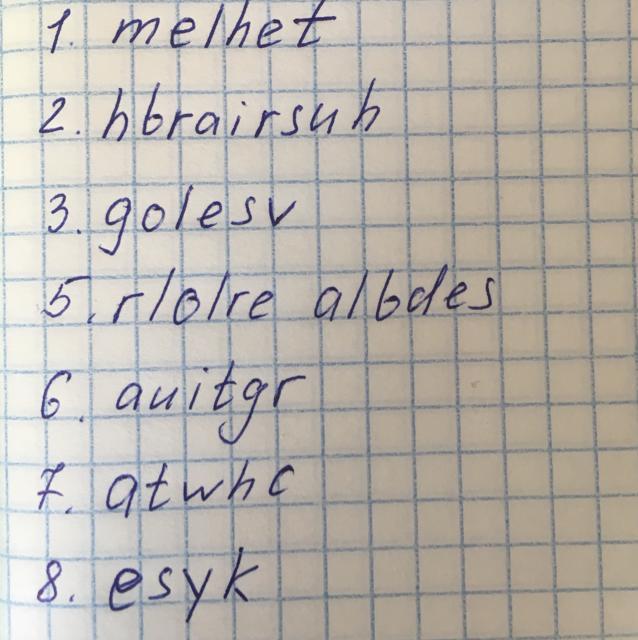 1. melhet
2. hbrairsuh
3. golesv
5. rlolre albdes
6. auitgr
7. atwhc
8. esyk